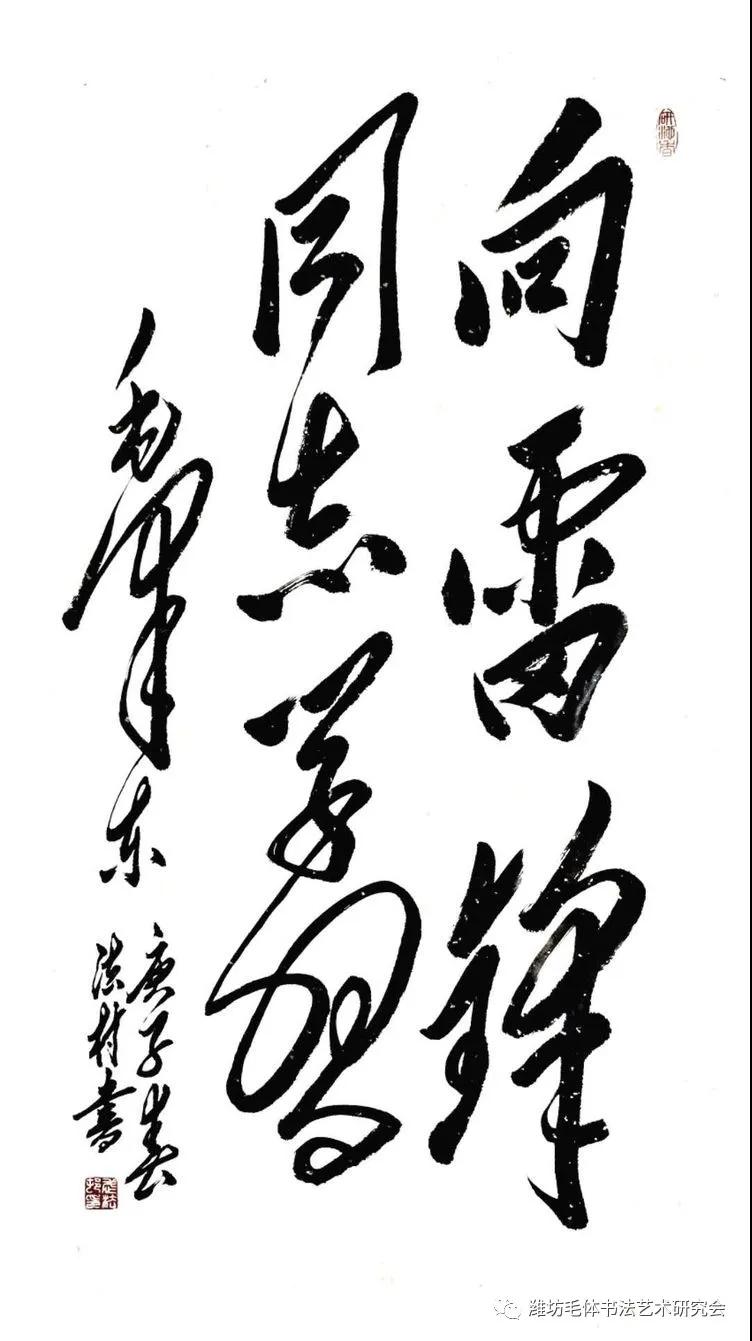 向雷锋
同志学習
毛泽东
庚子春
法村書
潍坊毛体书法艺术研究会